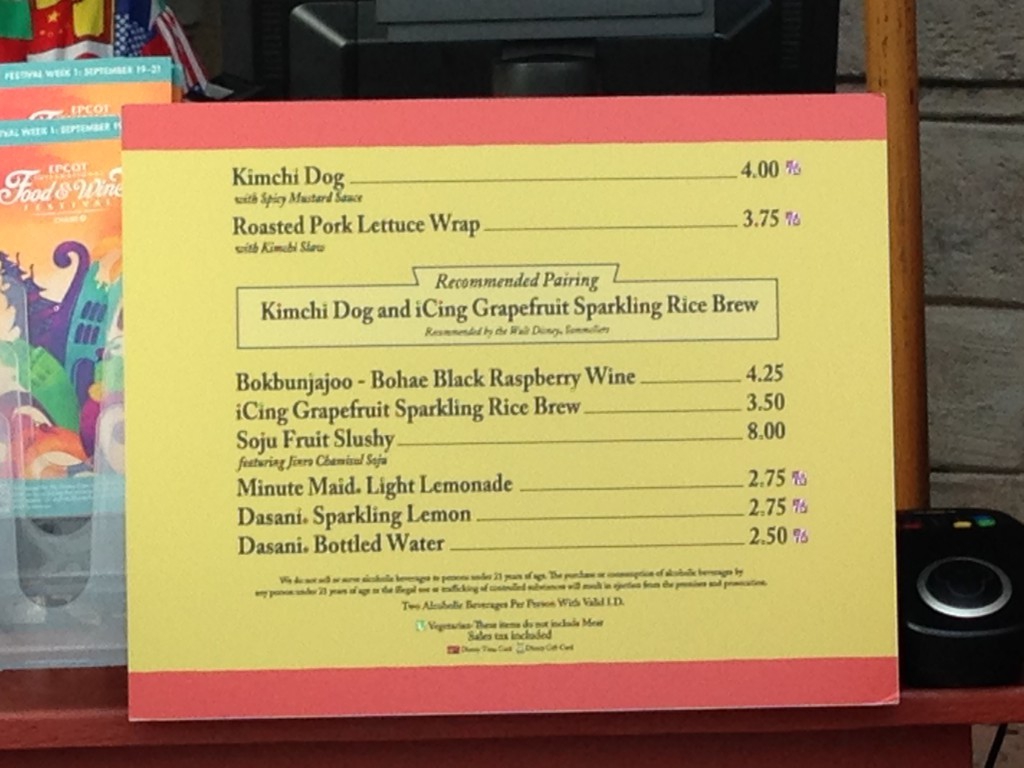 FESTIVAL WEEK 1: SEPTEMBER 19-21
EPCOT
VAL WEEK 1: SEPTEMBER 19
EPCOT
INTERNATIONAL
Food & Wine
FESTIVAL
Kimchi Dog 4.00
with Spicy Mustard Sauce
Roasted Pork Lettuce Wrap 3.75
with Kimchi Slaw
Recommended Pairing
Kimchi Dog and iCing Grapefruit Sparkling Rice Brew
Recommended by the Walt Disney. Sommeliers
Bokbunjajoo - Bohae Black Raspberry Wine 4.25
iCing Grapefruit Sparkling Rice Brew 3.50
Soju Fruit Slushy 8.00
featuring Jinro Chamisul Soju
Minute Maid® Light Lemonade 2.75
Dasani® Sparkling Lemon 2.75
Dasani® Bottled Water 2.50
We do not sell or serve alcoholic beverages to persons under 21 years of age. The purchase or consumption of alcoholic beverages by
any person under 21 years of age or the illegal use or trafficking of controlled substances will result in ejection from the premises and prosecution.
Two Alcoholic Beverages Per Person With Valid I.D.
Vegetarian-These items do not include Meat
Sales tax included
Disney Visa Card Disney Gift Card